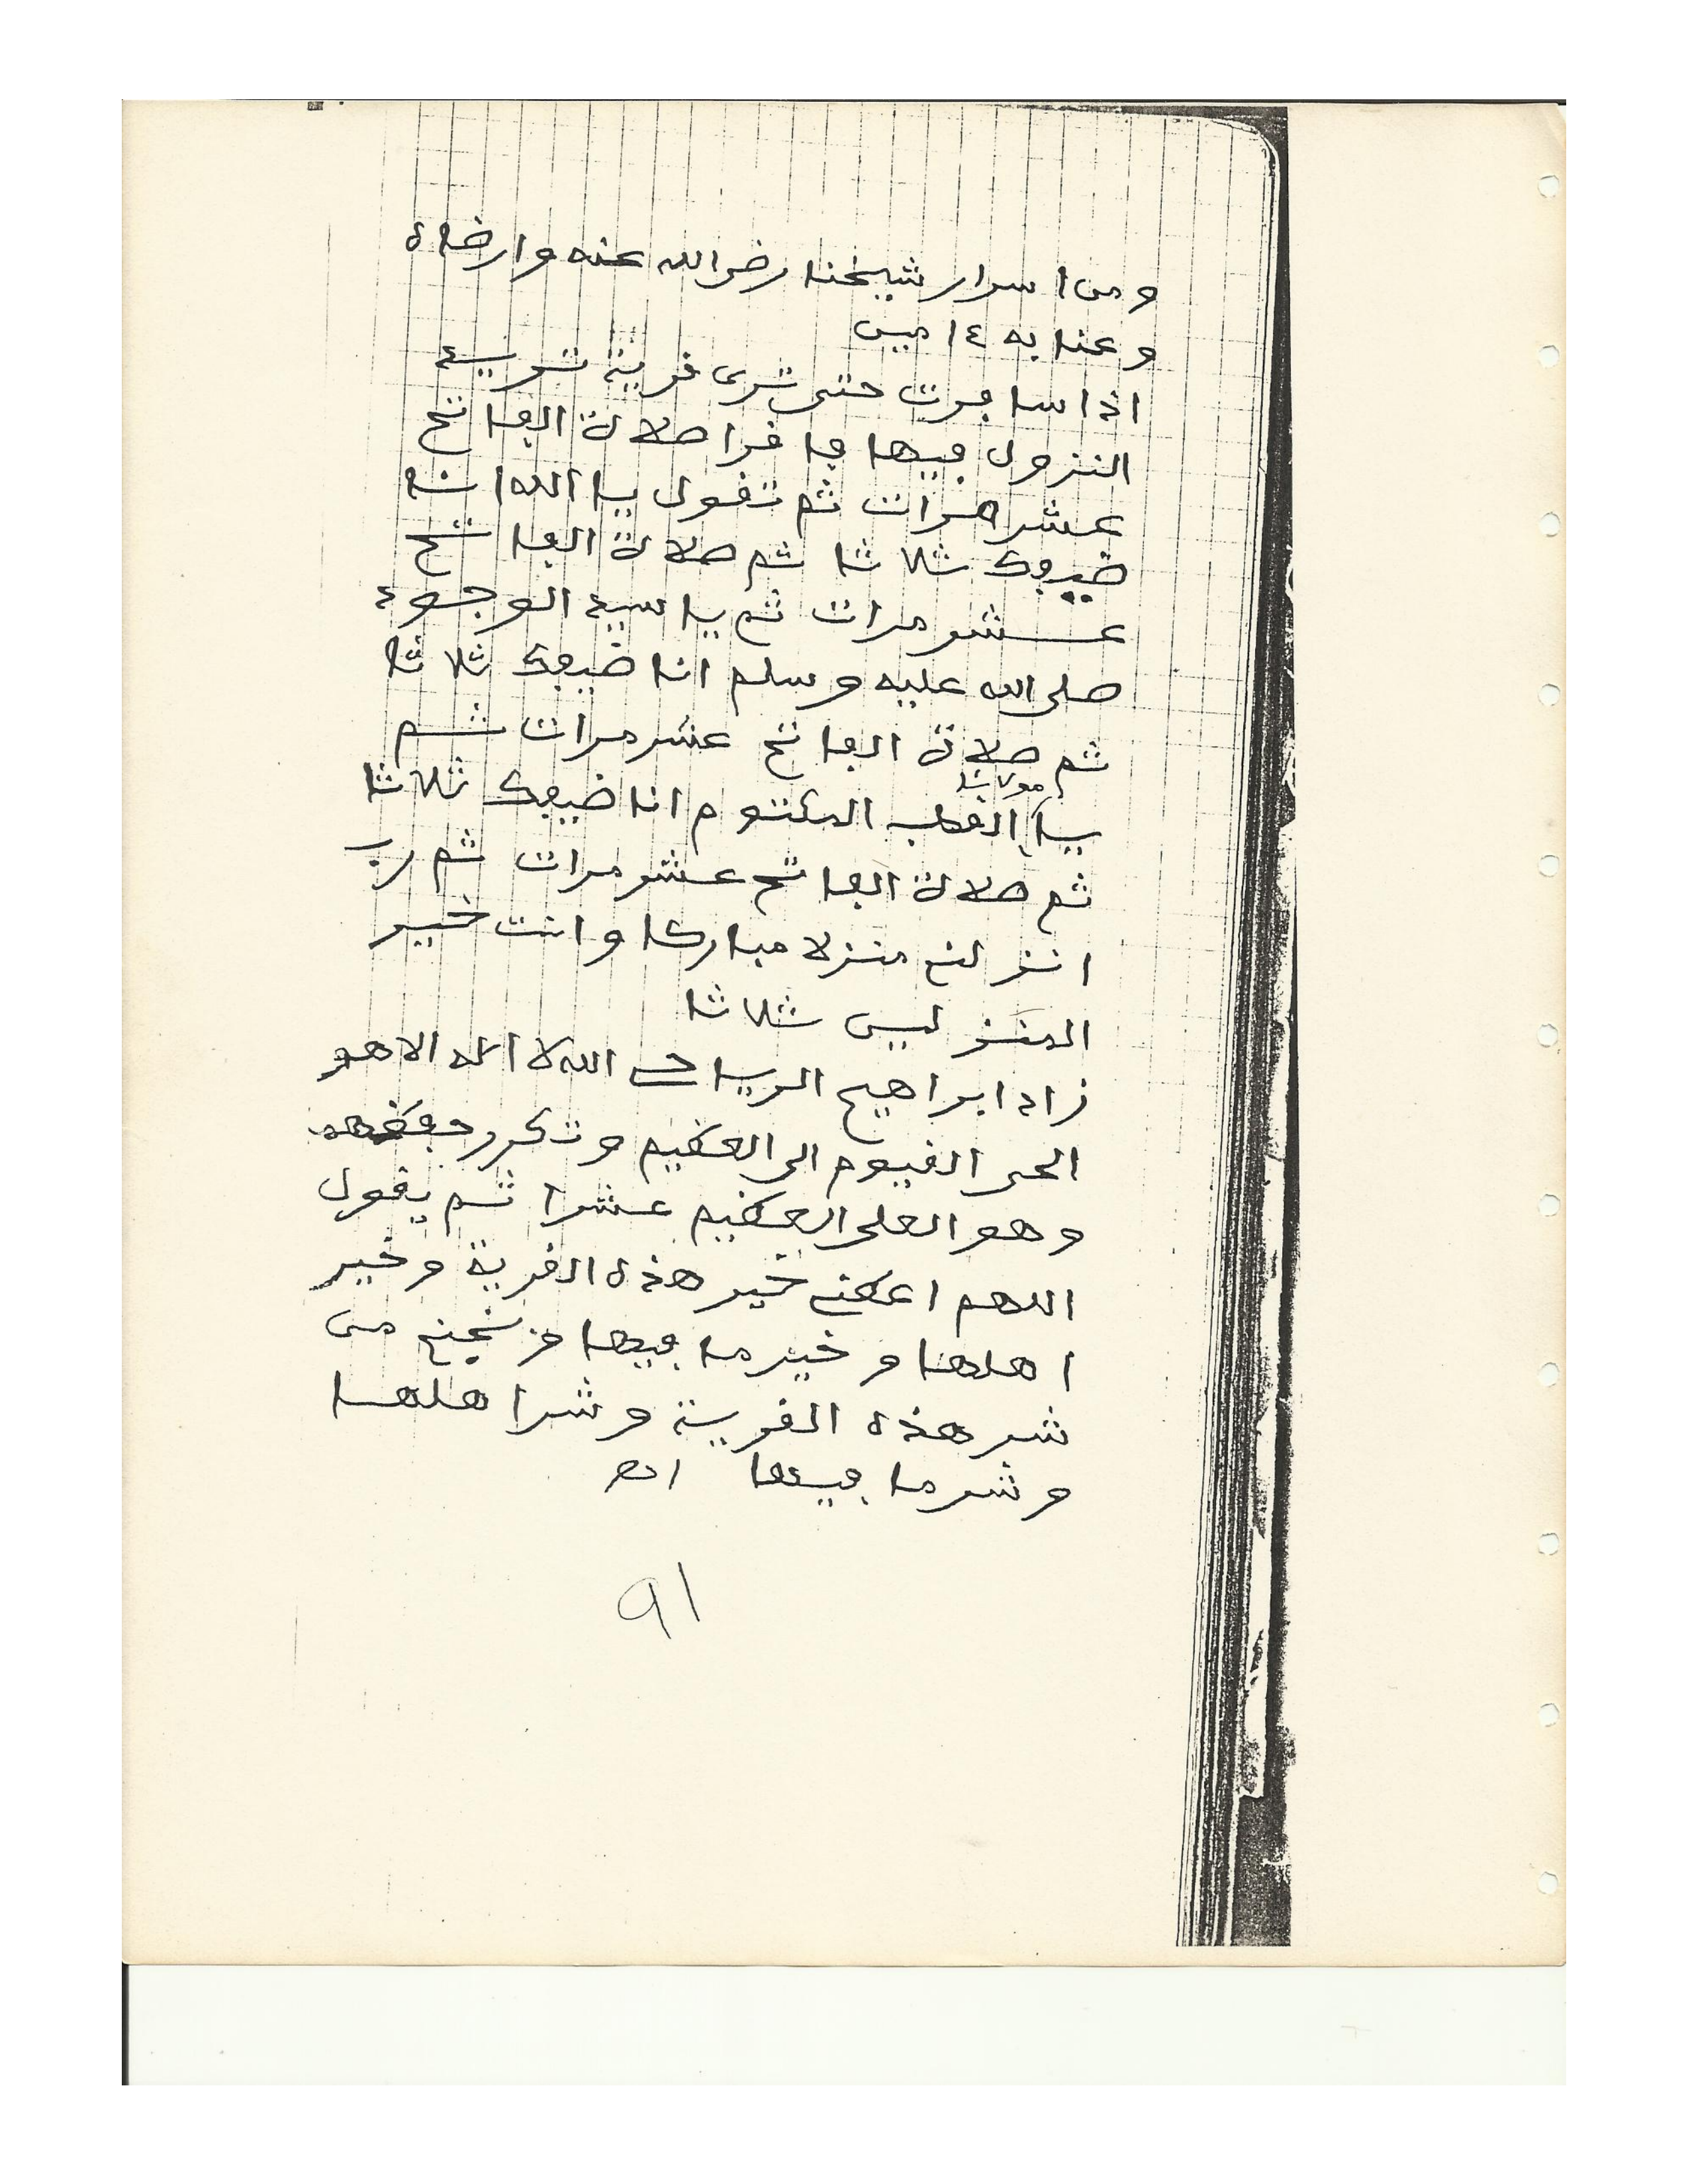 ومن اسرار شيخنا رضي الله عنه وارضاه
وعنا به ءامين
اذا سافرت حتى ترى قرية تريد
النزول فيها فاقرا صلاة الفاتح
عشر مرات ثم تقول يا الله انا
ضيفك ثلاثا ثم صلاة الفاتح
عشر مرات ثم يا سيد الوجود
صلى الله عليه وسلم انا ضيفك ثلاثا
ثم صلاة الفاتح عشر مرات ثم
يا مولانا القطب المكتوم انا ضيفك ثلاثا
ثم صلاة الفاتح عشر مرات ثم رب
انزلني منزلا مباركا وانت خير
المنزلين ثلاثا
زاد ابراهيم الرياحي الله لا اله الا هو
الحي القيوم الى العظيم وتكرر حفظهما
وهو العلي العظيم عشرا ثم يقول
اللهم اعطني خير هذه القرية وخير
اهلها وخير ما فيها ونجني من
شر هذه القرية وشر اهلها
وشر ما فيها اهـ
91